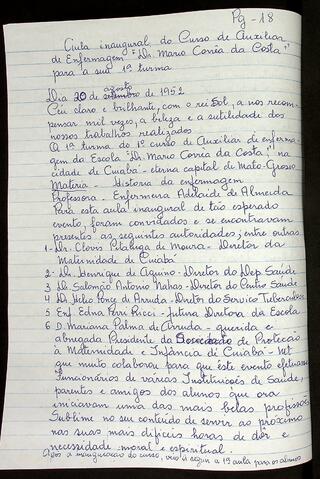 Pg-18
Aula inaugural do Curso de Auxiliar
de Enfermagem "Dr. Mario Corrêa da Costa",
para a sua 1ª turma
agosto
Dia 20 de setembro de 1952
Céu claro e brilhante, com o rei Sol, a nos recom
pensar mil vezes, a beleza e a utilidade dos
nossos trabalhos realizados
O 1ª turma do 1º curso de Auxiliar de enferma-
gem da Escola "Dr. Mario Corrêa da Costa," na
cidade de Cuiabá - eterna capital de Mato-Grosso
Matéria - Historia da enfermagem
Professora - Enfermeira Adelaide de Almeida
Para esta aula inaugural de tão esperado
evento, foram convidados e se encontravam
presentes as seguintes autoridades, entre outras
1- Dr. Clovis Pitaluga de Moura - Diretor da
Maternidade de Cuiabá
2- Dr. Henrique de Aquino - Diretor do Dep. Saúde
3 Dr. Salomão Antonio Nahas - Diretor do Centro Saúde
4 Dr. Hélio Ponce de Arruda - Diretor do Serviço Tuberculose
5 Enf Edna Perri Ricci - futura Diretora da Escola
6 D. Mariana Palma de Arruda - querida e
abnegada Presidente da Sociedade de Proteção
à Maternidade e Infância de Cuiabá - MT
que muito colaborou para que êste evento efetivasse
Funcionários de varias Instituições de Saúde,
parentes e amigos dos alunos que ora
iniciavam uma das mais belas profissões
Sublime no seu conteúdo de servir ao próximo
nas suas mais difíceis horas de dôr e
necessidade moral e espiritual.
a inauguração do curso, veio a seguir a 1ª aula para os alunos